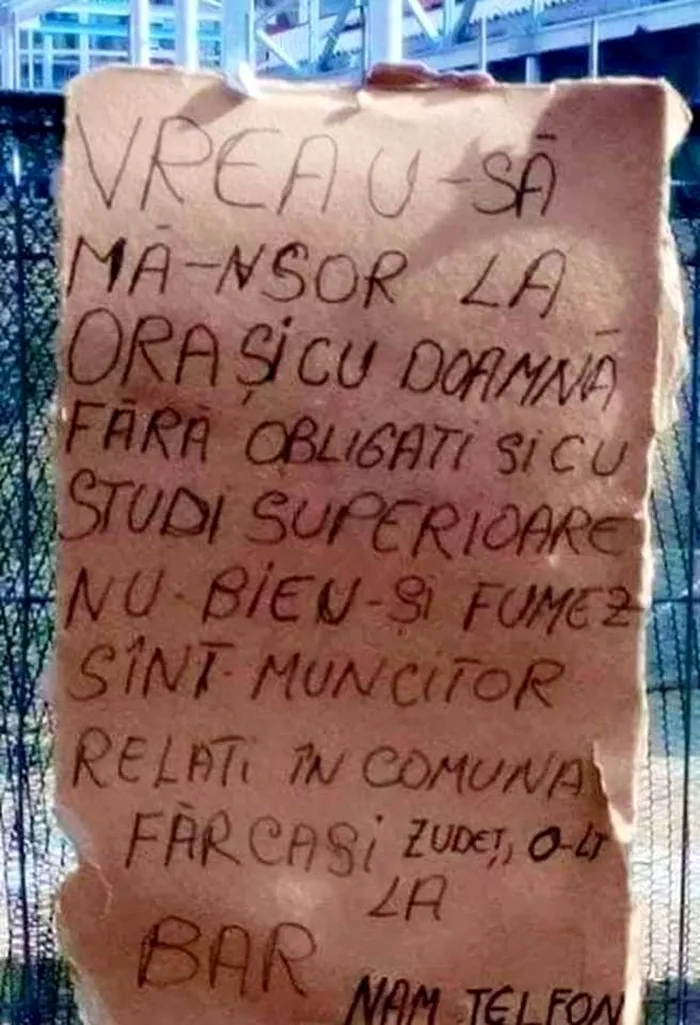 VREAU-SĂ
MĂ-NSOR LA
ORAȘiCU DOAMNĂ
FĂRĂ OBLIGATi SiCU
STUDi SUPERIOARE
NU-BiEU-Și FUMEZ
SÎNT-MUNCiTOR
RELATi ÎN COMUNA
FĂRCAȘi ZUDEȚ, O-LT
LA
BAR
NAM TELFON